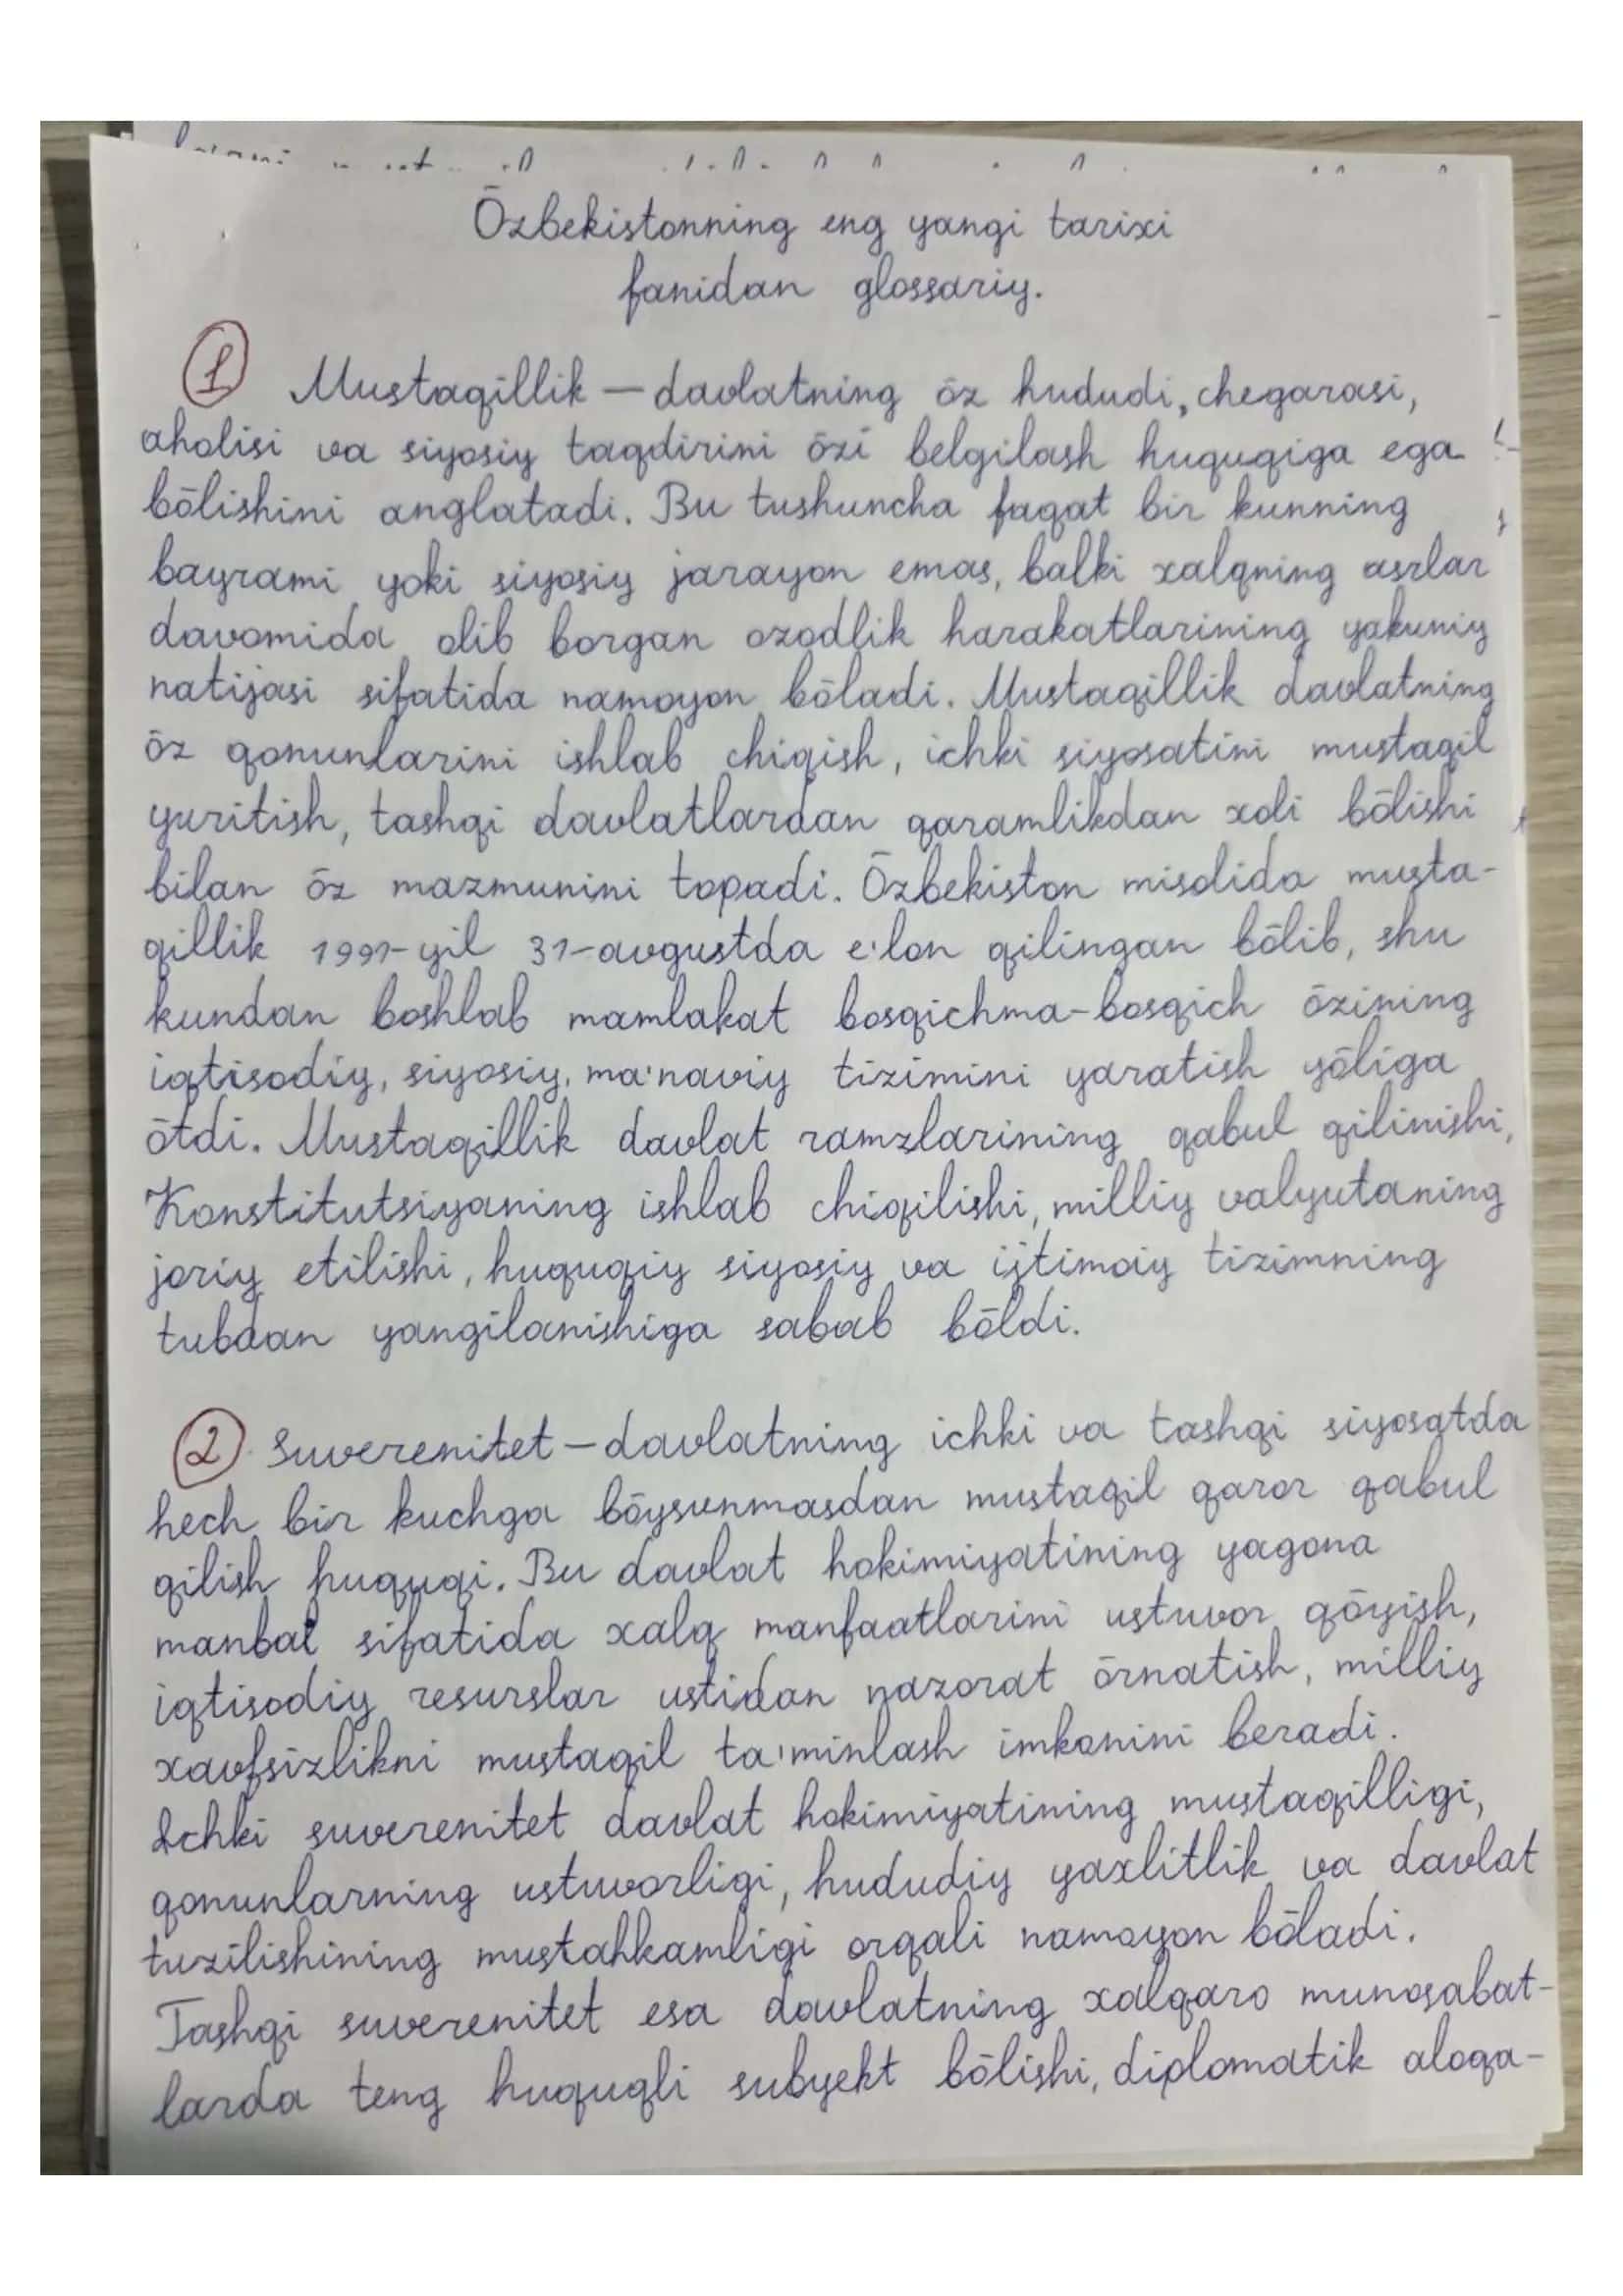 Ōzbekistonning eng yangi tarixi
fanidan glossariy.
1 Mustaqillik – davlatning ōz hududi, chegarasi,
aholisi va siyosiy taqdirini ōzi belgilash huquqiga ega
bōlishini anglatadi. Bu tushuncha faqat bir kunning
bayrami yoki siyosiy jarayon emas, balki xalqning asrlar
davomida olib borgan ozodlik harakatlarining yakuniy
natijasi sifatida namoyon bōladi. Mustaqillik davlatning
ōz qonunlarini ishlab chiqish, ichki siyosatini mustaqil
yuritish, tashqi davlatlardan qaramlikdan xoli bōlishi
bilan ōz mazmunini topadi. Ōzbekiston misolida musta-
qillik 1991-yil 31-avgustda e'lon qilingan bōlib, shu
kundan boshlab mamlakat bosqichma-bosqich ōzining
iqtisodiy, siyosiy, ma'naviy tizimini yaratish yōliga
ōtdi. Mustaqillik davlat ramzlarining qabul qilinishi,
Konstitutsiyaning ishlab chiqilishi, milliy valyutaning
joriy etilishi, huquqiy siyosiy va ijtimoiy tizimning
tubdan yangilanishiga sabab bōldi.
2 Suverenitet – davlatning ichki va tashqi siyosatda
hech bir kuchga bōysunmasdan mustaqil qaror qabul
qilish huquqi. Bu davlat hokimiyatining yagona
manbai sifatida xalq manfaatlarini ustuvor qōyish,
iqtisodiy resurslar ustidan nazorat ōrnatish, milliy
xavfsizlikni mustaqil ta'minlash imkonini beradi.
Ichki suverenitet davlat hokimiyatining mustaqilligi,
qonunlarning ustuvorligi, hududiy yaxlitlik va davlat
tuzilishining mustahkamligi orqali namoyon bōladi.
Tashqi suverenitet esa davlatning xalqaro munosabat-
larda teng huquqli subyekt bōlishi, diplomatik aloqa-